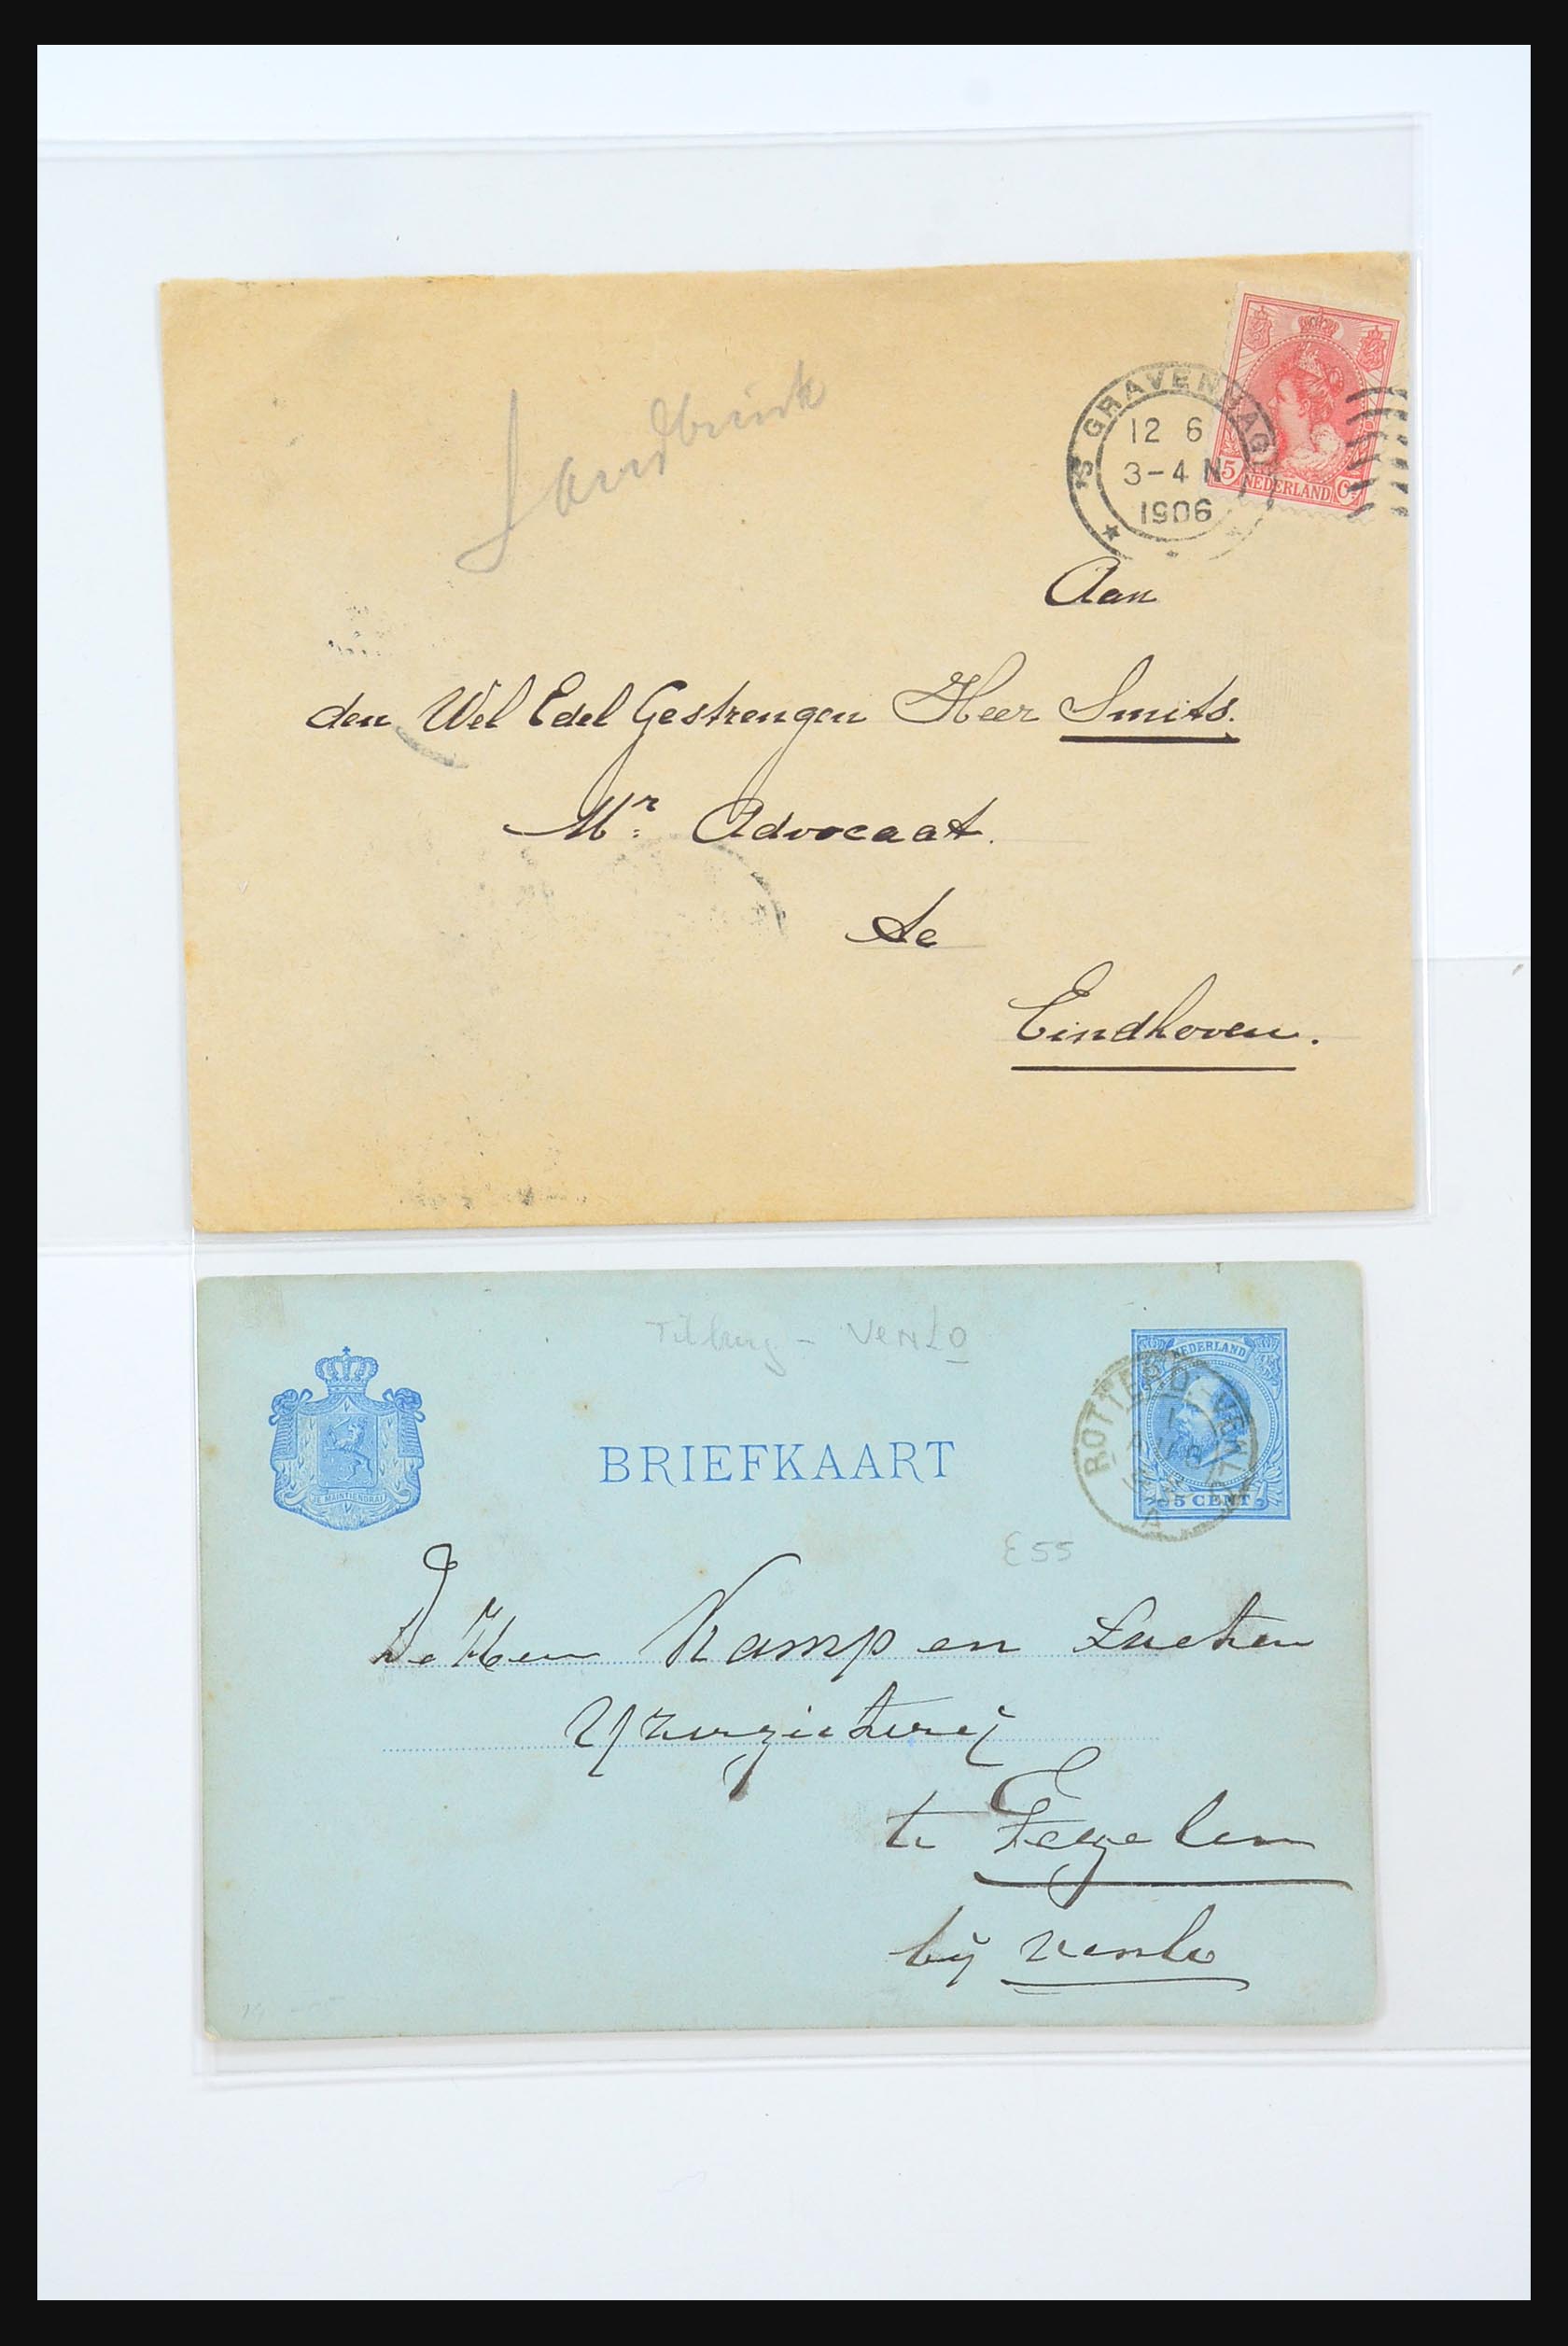 Landbrink
'S GRAVENHAGE
12 6
3-4 N
1906
NEDERLAND
5 Ct
Aan
den Wel Edel Gestrengen Heer Smits.
Mr. Advocaat.
te
Eindhoven.
Tilburg - VENLO
NEDERLAND
5 CENT
ROTTERD
VENLO
JE MAINTIENDRAI
BRIEFKAART
E 55
De Heer Kamp en
te Tegelen
bij Venlo